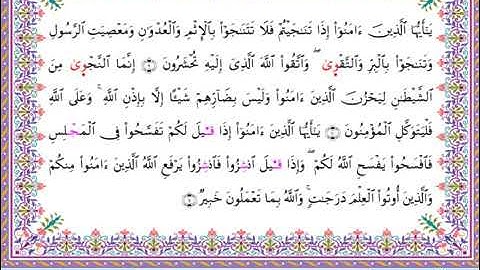 يَـٰٓأَيُّهَا ٱلَّذِينَ ءَامَنُوٓا۟ إِذَا تَنَـٰجَيْتُمْ فَلَا تَتَنَـٰجَوْا۟ بِٱلْإِثْمِ وَٱلْعُدْوَٰنِ وَمَعْصِيَتِ ٱلرَّسُولِ
وَتَنَـٰجَوْا۟ بِٱلْبِرِّ وَٱلتَّقْوِىٰ ۖ وَٱتَّقُوا۟ ٱللَّهَ ٱلَّذِىٓ إِلَيْهِ تُحْشَرُونَ ۝ إِنَّمَا ٱلنَّجْوِىٰ مِنَ
ٱلشَّيْطَـٰنِ لِيَحْزُنَ ٱلَّذِينَ ءَامَنُوا۟ وَلَيْسَ بِضَآرِّهِمْ شَيْـًٔا إِلَّا بِإِذْنِ ٱللَّهِ ۚ وَعَلَى ٱللَّهِ
فَلْيَتَوَكَّلِ ٱلْمُؤْمِنُونَ ۝ يَـٰٓأَيُّهَا ٱلَّذِينَ ءَامَنُوٓا۟ إِذَا قِيلَ لَكُمْ تَفَسَّحُوا۟ فِى ٱلْمَجْلِسِ
فَٱفْسَحُوا۟ يَفْسَحِ ٱللَّهُ لَكُمْ ۖ وَإِذَا قِيلَ ٱنشِزُوا۟ فَٱنشِزُوا۟ يَرْفَعِ ٱللَّهُ ٱلَّذِينَ ءَامَنُوا۟ مِنكُمْ
وَٱلَّذِينَ أُوتُوا۟ ٱلْعِلْمَ دَرَجَـٰتٍ ۚ وَٱللَّهُ بِمَا تَعْمَلُونَ خَبِيرٌ ۝